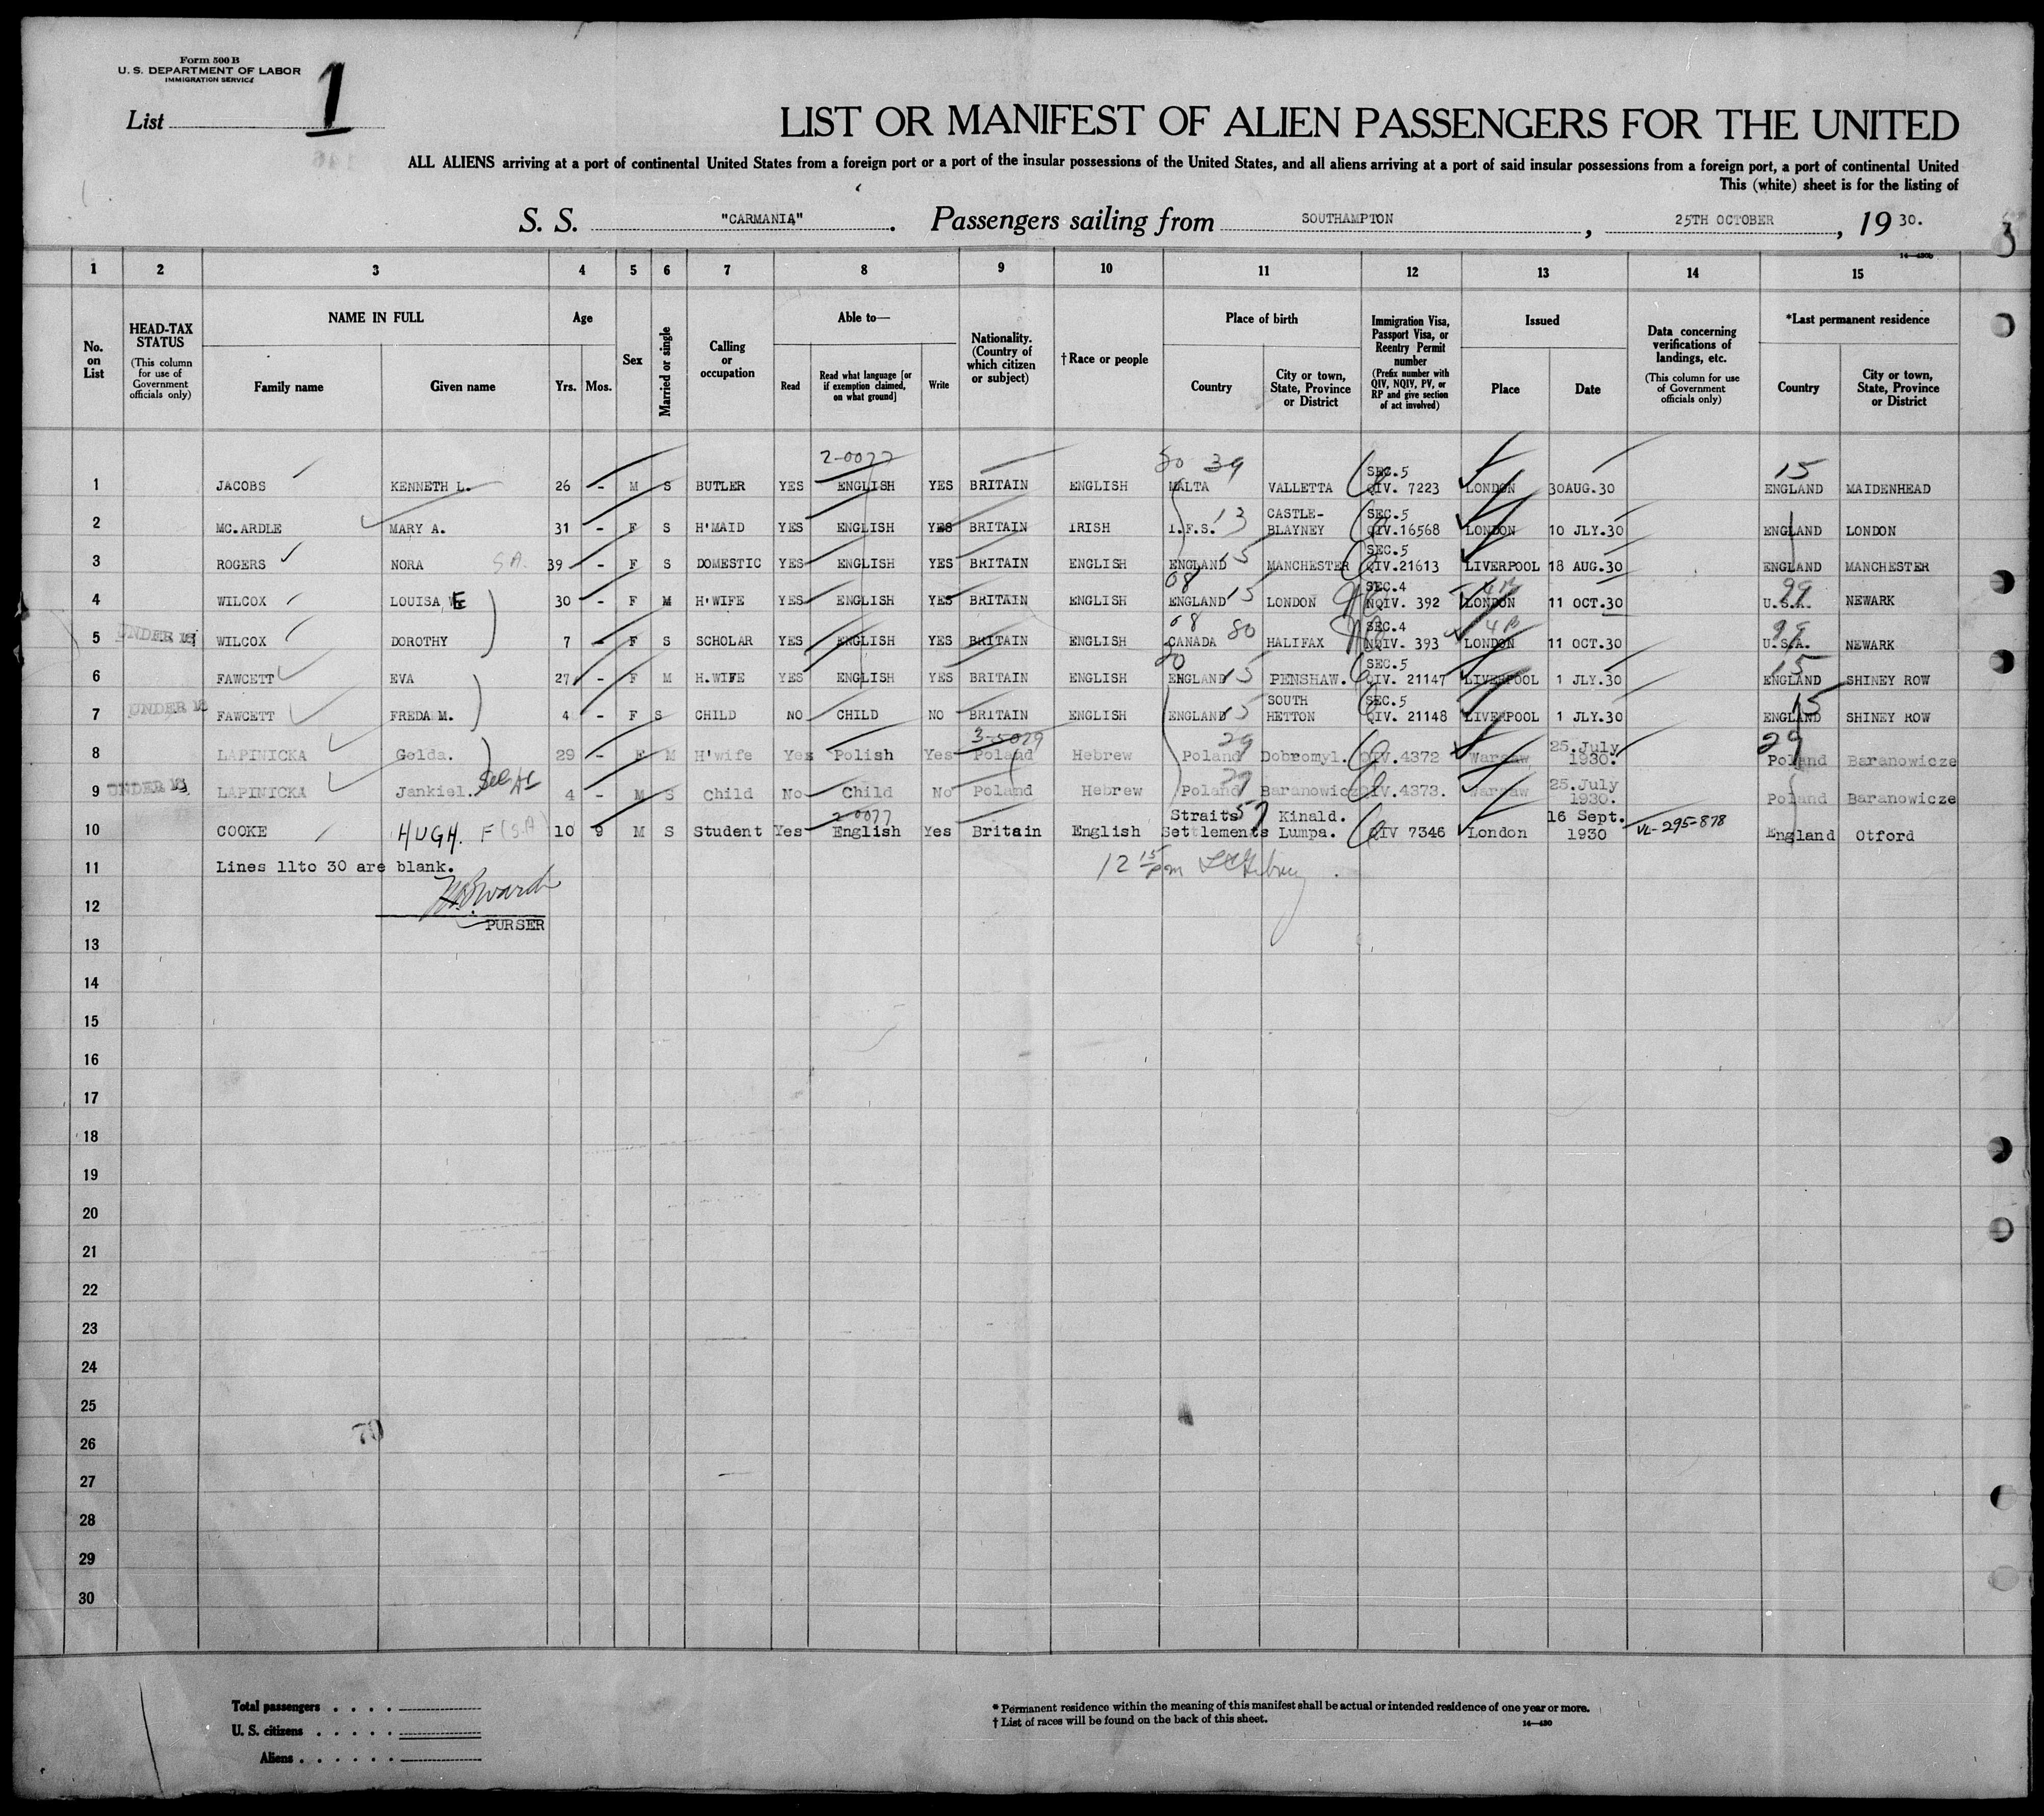 Form 500 B
U. S. DEPARTMENT OF LABOR
IMMIGRATION SERVICE
List 1
LIST OR MANIFEST OF ALIEN PASSENGERS FOR THE UNITED
ALL ALIENS arriving at a port of continental United States from a foreign port or a port of the insular possessions of the United States, and all aliens arriving at a port of said insular possessions from a foreign port, a port of continental United
This (white) sheet is for the listing of
S. S. "CARMANIA". Passengers sailing from SOUTHAMPTON, 25TH OCTOBER, 19 30.
3
1 2 3 4 5 6 7 8 9 10 11 12 13 14 15
No. on List
HEAD-TAX STATUS (This column for use of Government officials only)
NAME IN FULL
Family name Given name
Age
Yrs. Mos.
Sex
Married or single
Calling or occupation
Able to—
Read
Read what language [or if exemption claimed, on what ground]
Write
Nationality. (Country of which citizen or subject)
†Race or people
Place of birth
Country
City or town, State, Province or District
Immigration Visa, Passport Visa, or Reentry Permit number (Prefix number with QIV, NQIV, PV, or RP and give section of act involved)
Issued
Place Date
Data concerning verifications of landings, etc. (This column for use of Government officials only)
*Last permanent residence
Country
City or town, State, Province or District
2-0077 39 15
1 JACOBS KENNETH L. 26 - M S BUTLER YES ENGLISH YES BRITAIN ENGLISH MALTA VALLETTA SEC.5 QIV. 7223 LONDON 30AUG.30 ENGLAND MAIDENHEAD
2 MC.ARDLE MARY A. 31 - F S H'MAID YES ENGLISH YES BRITAIN IRISH I.F.S. 13 CASTLE-BLAYNEY SEC.5 QIV.16568 LONDON 10 JLY.30 ENGLAND LONDON
3 ROGERS NORA S.A. 39 - F S DOMESTIC YES ENGLISH YES BRITAIN ENGLISH ENGLAND 15 MANCHESTER SEC.5 QIV.21613 LIVERPOOL 18 AUG.30 ENGLAND MANCHESTER
4 WILCOX LOUISA E 30 - F M H'WIFE YES ENGLISH YES BRITAIN ENGLISH 08 ENGLAND 15 LONDON SEC.4 NQIV. 392 LONDON 4B 11 OCT.30 99 U.S.A. NEWARK
5 UNDER 16 WILCOX DOROTHY 7 - F S SCHOLAR YES ENGLISH YES BRITAIN ENGLISH 08 CANADA 80 HALIFAX SEC.4 NQIV. 393 LONDON 4B 11 OCT.30 99 U.S.A. NEWARK
6 FAWCETT EVA 27 - F M H.WIFE YES ENGLISH YES BRITAIN ENGLISH ENGLAND 15 PENSHAW. SEC.5 QIV. 21147 LIVERPOOL 1 JLY.30 15 ENGLAND SHINEY ROW
7 UNDER 16 FAWCETT FREDA M. 4 - F S CHILD NO CHILD NO BRITAIN ENGLISH ENGLAND 15 SOUTH HETTON SEC.5 QIV. 21148 LIVERPOOL 1 JLY.30 15 ENGLAND SHINEY ROW
8 LAPINICKA Golda. 29 - F M H'wife Yes Polish Yes 3-5029 Poland Hebrew 29 Poland Dobromyl. QIV.4372 Warsaw 25.July 1930. 29 Poland Baranowicze
9 UNDER 16 LAPINICKA Jankiel. 4 - M S Child No Child No Poland Hebrew 29 Poland Baranowicz QIV.4373. Warsaw 25.July 1930. Poland Baranowicze
10 COOKE HUGH. F (S.A) 10 9 M S Student Yes 2-0077 English Yes Britain English Straits 57 Settlements Kinald. Lumpa. QIV 7346 London 16 Sept. 1930 VL-295-878 England Otford
11 Lines 11to 30 are blank.
12 15 pm
12
PURSER
13
14
15
16
17
18
19
20
21
22
23
24
25
70
26
27
28
29
30
Total passengers . . . .
U. S. citizens . . . . .
Aliens . . . . . .
* Permanent residence within the meaning of this manifest shall be actual or intended residence of one year or more.
† List of races will be found on the back of this sheet.
14—430